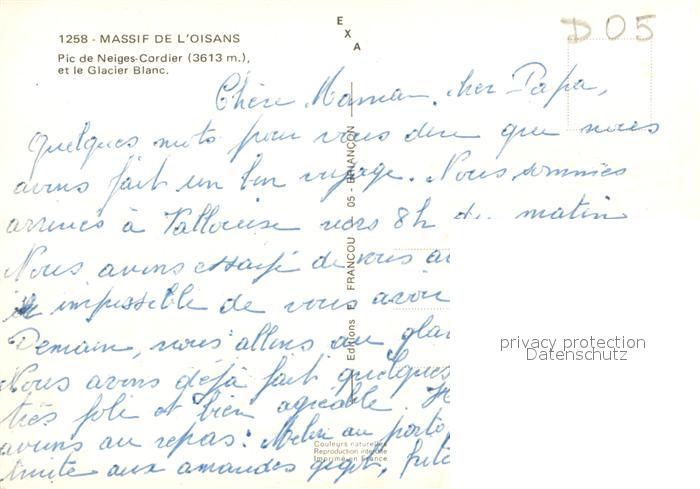 1258 - MASSIF DE L'OISANS
Pic de Neiges-Cordier (3613 m.),
et le Glacier Blanc.
E
X
A
D 05
Chère Maman, cher Papa,
Quelques mots pour vous dire que nous
avons fait un bon voyage. Nous sommes
arrivés à Vallouise vers 8h du matin
Nous avons essayé de vous
impossible de vous avoir
Demain, nous allons au
Nous avons déjà fait quelques
très joli et bien agréable.
avons au repas: Melon au porto
truite aux amandes gigot,
Editions E. FRANCOU 05 - BRIANÇON
Couleurs naturelles
Reproduction interdite
Imprimé en France
privacy protection
Datenschutz